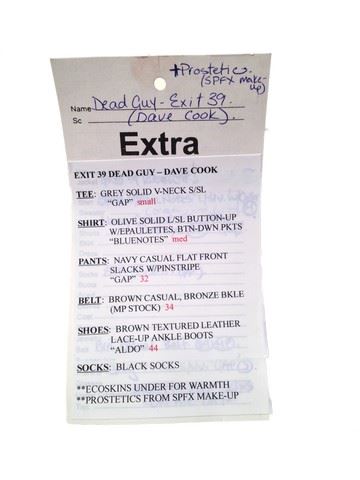 +Prostetics.
(SPFX make-
up)
Name Dead Guy - Exit 39.
Sc (Dave Cook).
Extra
EXIT 39 DEAD GUY – DAVE COOK
TEE: GREY SOLID V-NECK S/SL
"GAP" small
SHIRT: OLIVE SOLID L/SL BUTTON-UP
W/EPAULETTES, BTN-DWN PKTS
"BLUENOTES" med
PANTS: NAVY CASUAL FLAT FRONT
SLACKS W/PINSTRIPE
"GAP" 32
BELT: BROWN CASUAL, BRONZE BKLE
(MP STOCK) 34
SHOES: BROWN TEXTURED LEATHER
LACE-UP ANKLE BOOTS
"ALDO" 44
SOCKS: BLACK SOCKS
**ECOSKINS UNDER FOR WARMTH
**PROSTETICS FROM SPFX MAKE-UP